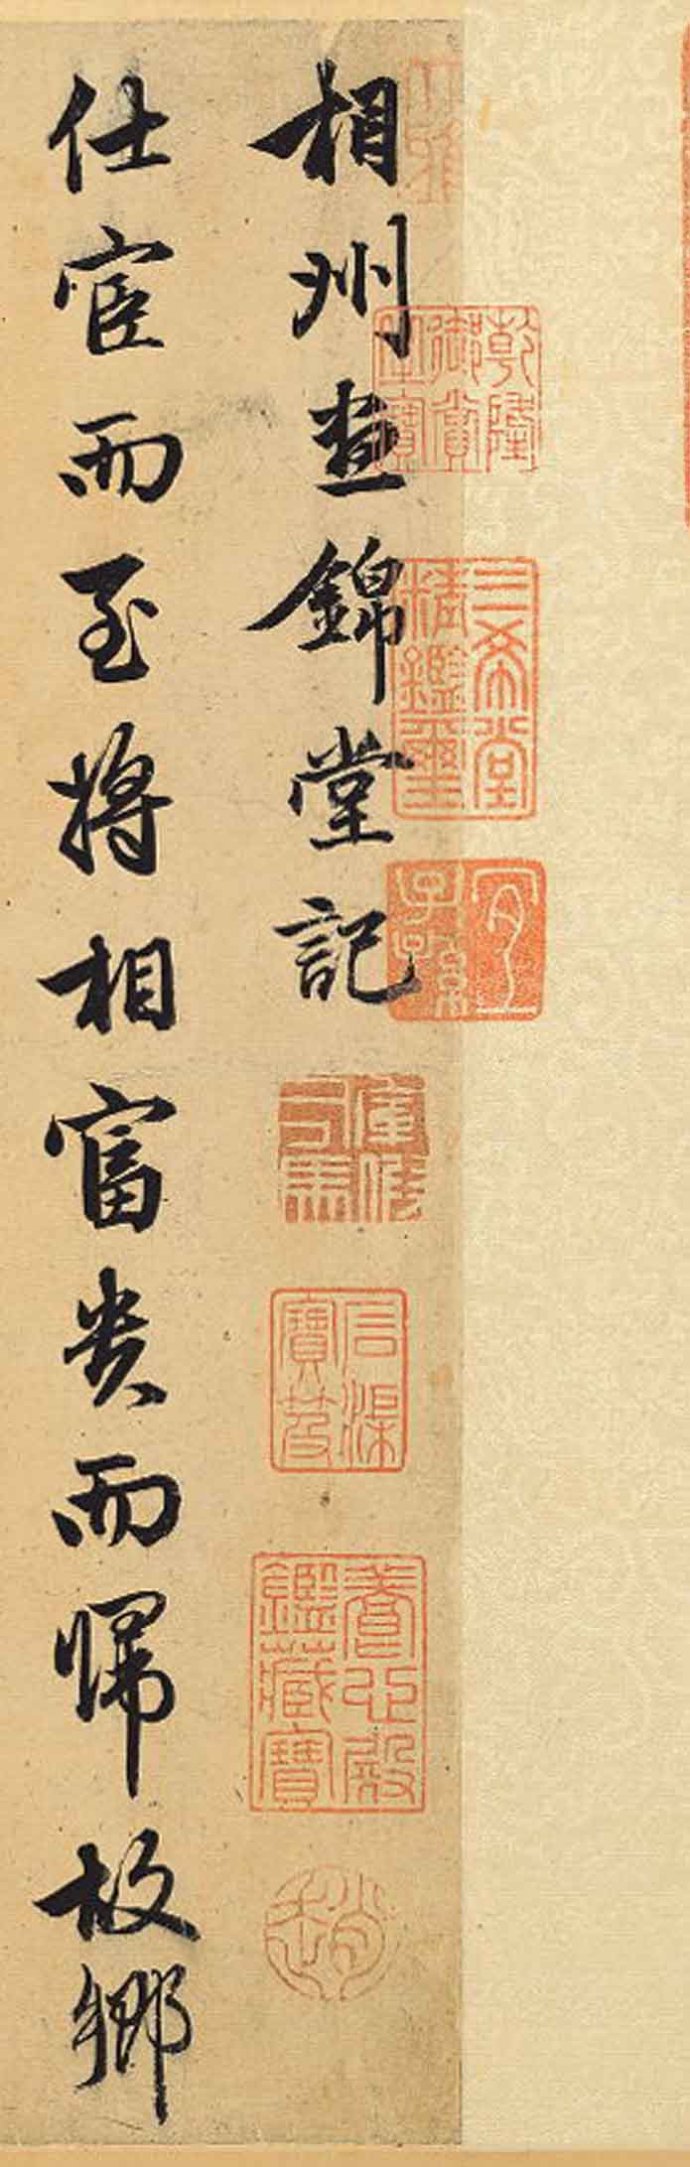 相州昼錦堂記
仕宦而至將相富貴而歸故鄉
乾隆御賞之寶
三希堂精鑑璽
宜子孫
石渠寶笈
養心殿鑑藏寶
趙